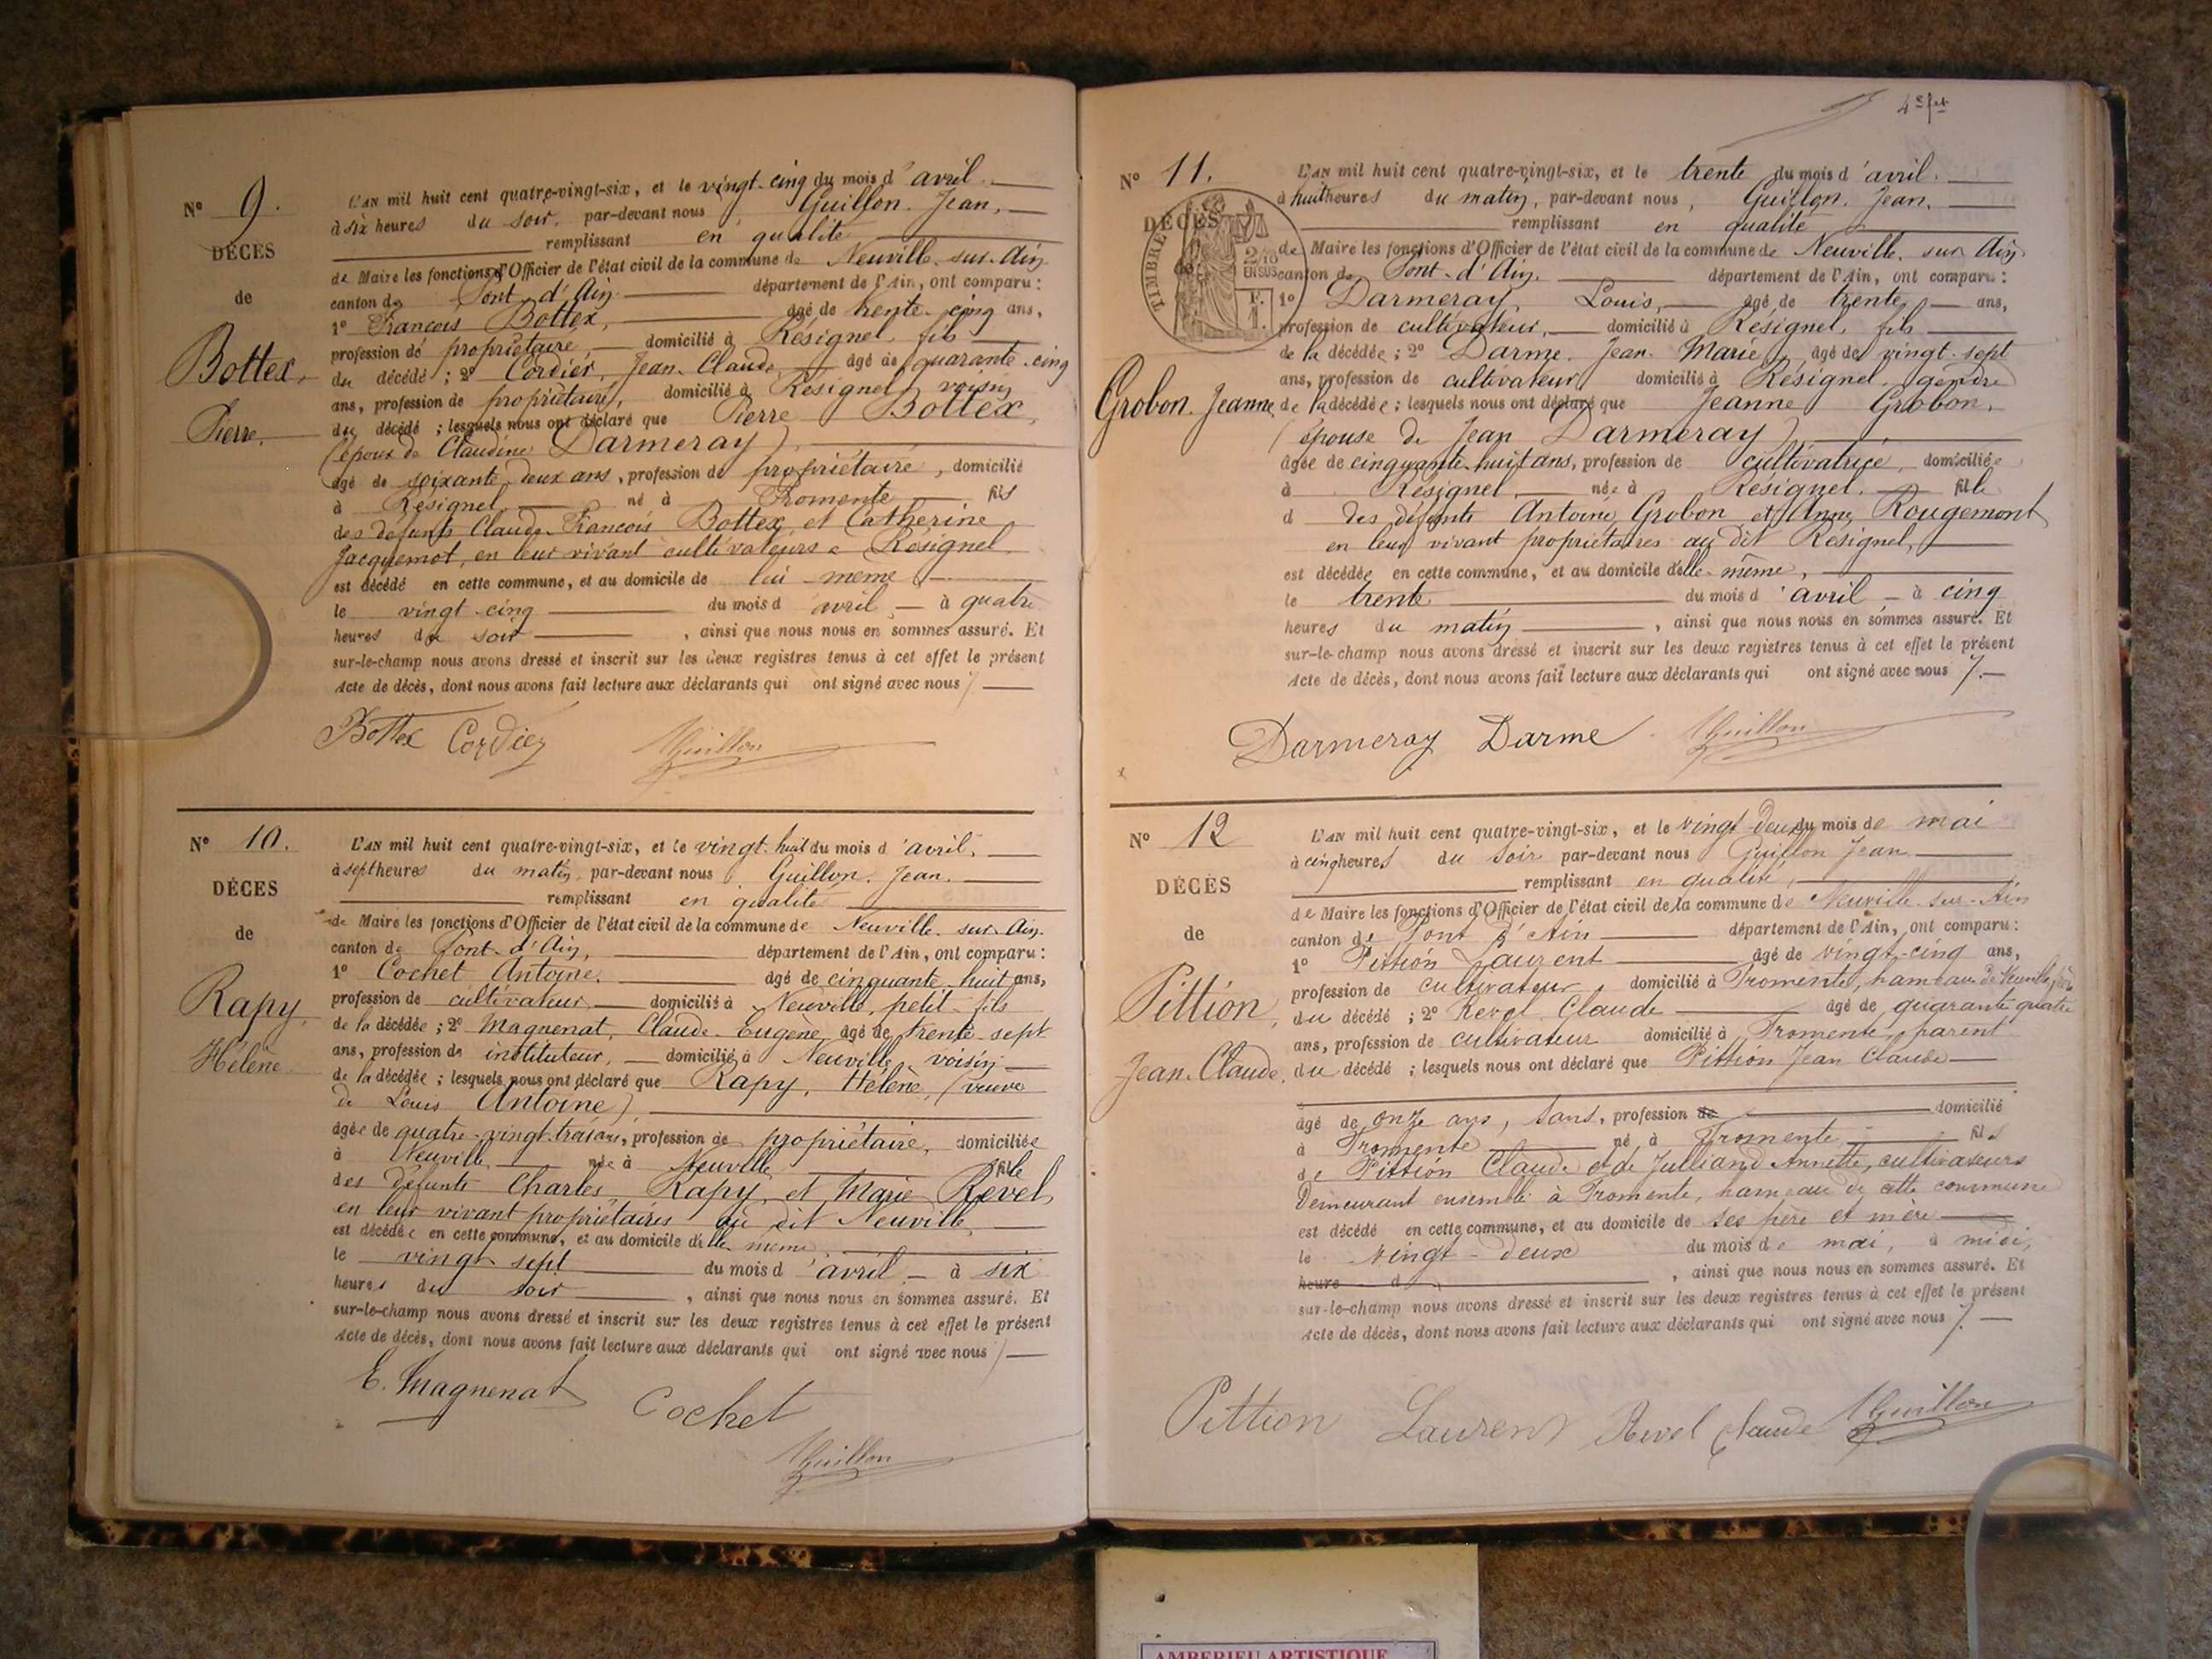 Nº 9.
DÉCÈS
de
Bottex,
Pierre.
L'AN mil huit cent quatre-vingt-six, et le vingt-cinq du mois d'avril
à six heures du soir, par-devant nous, Guillon Jean,
remplissant en qualité
de Maire les fonctions d'Officier de l'état civil de la commune de Neuville-sur-Ain
canton de Pont-d'Ain département de l'Ain, ont comparu :
1º François Bottex, âgé de trente-cinq ans,
profession de propriétaire domicilié à Résignel, fils
du décédé ; 2º Cordier, Jean-Claude, âgé de quarante-cinq
ans, profession de propriétaire, domicilié à Résignel, voisin
du décédé ; lesquels nous ont déclaré que Pierre Bottex,
(époux de Claudine Darmeray),
âgé de soixante-deux ans, profession de propriétaire, domicilié
à Résignel né à Fromente fils
des défunts Claude-François Bottex et Catherine
Jacquemot, en leur vivant cultivateurs à Résignel
est décédé en cette commune, et au domicile de lui-même,
le vingt-cinq du mois d'avril à quatre
heures du soir, ainsi que nous nous en sommes assuré. Et
sur-le-champ nous avons dressé et inscrit sur les deux registres tenus à cet effet le présent
Acte de décès, dont nous avons fait lecture aux déclarants qui ont signé avec nous
Bottex Cordier JGuillon
Nº 10.
DÉCÈS
de
Rapy,
Hélène
L'AN mil huit cent quatre-vingt-six, et le vingt-huit du mois d'avril,
à sept heures du matin, par-devant nous, Guillon, Jean.
remplissant en qualité
de Maire les fonctions d'Officier de l'état civil de la commune de Neuville-sur-Ain.
canton de Pont-d'Ain, département de l'Ain, ont comparu :
1º Cochet Antoine. âgé de cinquante-huit ans,
profession de cultivateur domicilié à Neuville, petit-fils
de la décédée ; 2º Magnenat, Claude-Eugène, âgé de trente-sept
ans, profession de instituteur, domicilié à Neuville, voisin
de la décédée ; lesquels nous ont déclaré que Rapy, Hélène, (veuve
de Louis Antoine),
âgée de quatre-vingt-trois ans, profession de propriétaire, domiciliée
à Neuville née à Neuville fille
des défunts Charles Rapy, et Marie Revel,
en leur vivant propriétaires au dit Neuville,
est décédée en cette commune, et au domicile d'elle-même,
le vingt-sept du mois d'avril à six
heures du soir, ainsi que nous nous en sommes assuré. Et
sur-le-champ nous avons dressé et inscrit sur les deux registres tenus à cet effet le présent
Acte de décès, dont nous avons fait lecture aux déclarants qui ont signé avec nous
E. Magnenat Cochet
JGuillon
Nº 11.
DÉCÈS
de
TIMBRE
2/10
EN SUS
F.
1.
Grobon. Jeanne
L'AN mil huit cent quatre-vingt-six, et le trente du mois d'avril.
à huit heures du matin, par-devant nous, Guillon, Jean.
remplissant en qualité
de Maire les fonctions d'Officier de l'état civil de la commune de Neuville-sur-Ain
canton de Pont-d'Ain. département de l'Ain, ont comparu :
1º Darmeray, Louis, âgé de trente ans,
profession de cultivateur, domicilié à Résignel, fils
de la décédée ; 2º Darme, Jean-Marie, âgé de vingt-sept
ans, profession de cultivateur domicilié à Résignel, gendre
de la décédée ; lesquels nous ont déclaré que Jeanne Grobon,
(épouse de Jean Darmeray),
âgée de cinquante-huit ans, profession de cultivatrice, domiciliée
à Résignel, née à Résignel, fille
d des défunts Antoine Grobon et Anne Rougemont
en leur vivant propriétaires au dit Résignel,
est décédée en cette commune, et au domicile d'elle-même,
le trente du mois d'avril à cinq
heures du matin, ainsi que nous nous en sommes assuré. Et
sur-le-champ nous avons dressé et inscrit sur les deux registres tenus à cet effet le présent
Acte de décès, dont nous avons fait lecture aux déclarants qui ont signé avec nous
Darmeray Darme JGuillon
Nº 12
DÉCÈS
de
Pittion,
Jean-Claude.
L'AN mil huit cent quatre-vingt-six, et le vingt-deux du mois de mai
à cinq heures du soir par-devant nous Guillon Jean
remplissant en qualité,
de Maire les fonctions d'Officier de l'état civil de la commune de Neuville-sur-Ain
canton de Pont d'Ain département de l'Ain, ont comparu :
1º Pittion Laurent âgé de vingt-cinq ans,
profession de cultivateur, domicilié à Fromente, hameau de Neuville,
du décédé ; 2º Revel Claude âgé de quarante-quatre
ans, profession de cultivateur domicilié à Fromente, parent
du décédé ; lesquels nous ont déclaré que Pittion Jean Claude
âgé de onze ans, sans, profession de domicilié
à Fromente né à Fromente fils
de Pittion Claude et de Julliand Annette, cultivateurs
demeurant ensemble à Fromente, hameau de cette commune
est décédé en cette commune, et au domicile de ses père et mère
le vingt-deux du mois de mai, à midi,
heure d, ainsi que nous nous en sommes assuré. Et
sur-le-champ nous avons dressé et inscrit sur les deux registres tenus à cet effet le présent
Acte de décès, dont nous avons fait lecture aux déclarants qui ont signé avec nous
Pittion Laurent Revel Claude JGuillon
AMBERIEU ARTISTIQUE